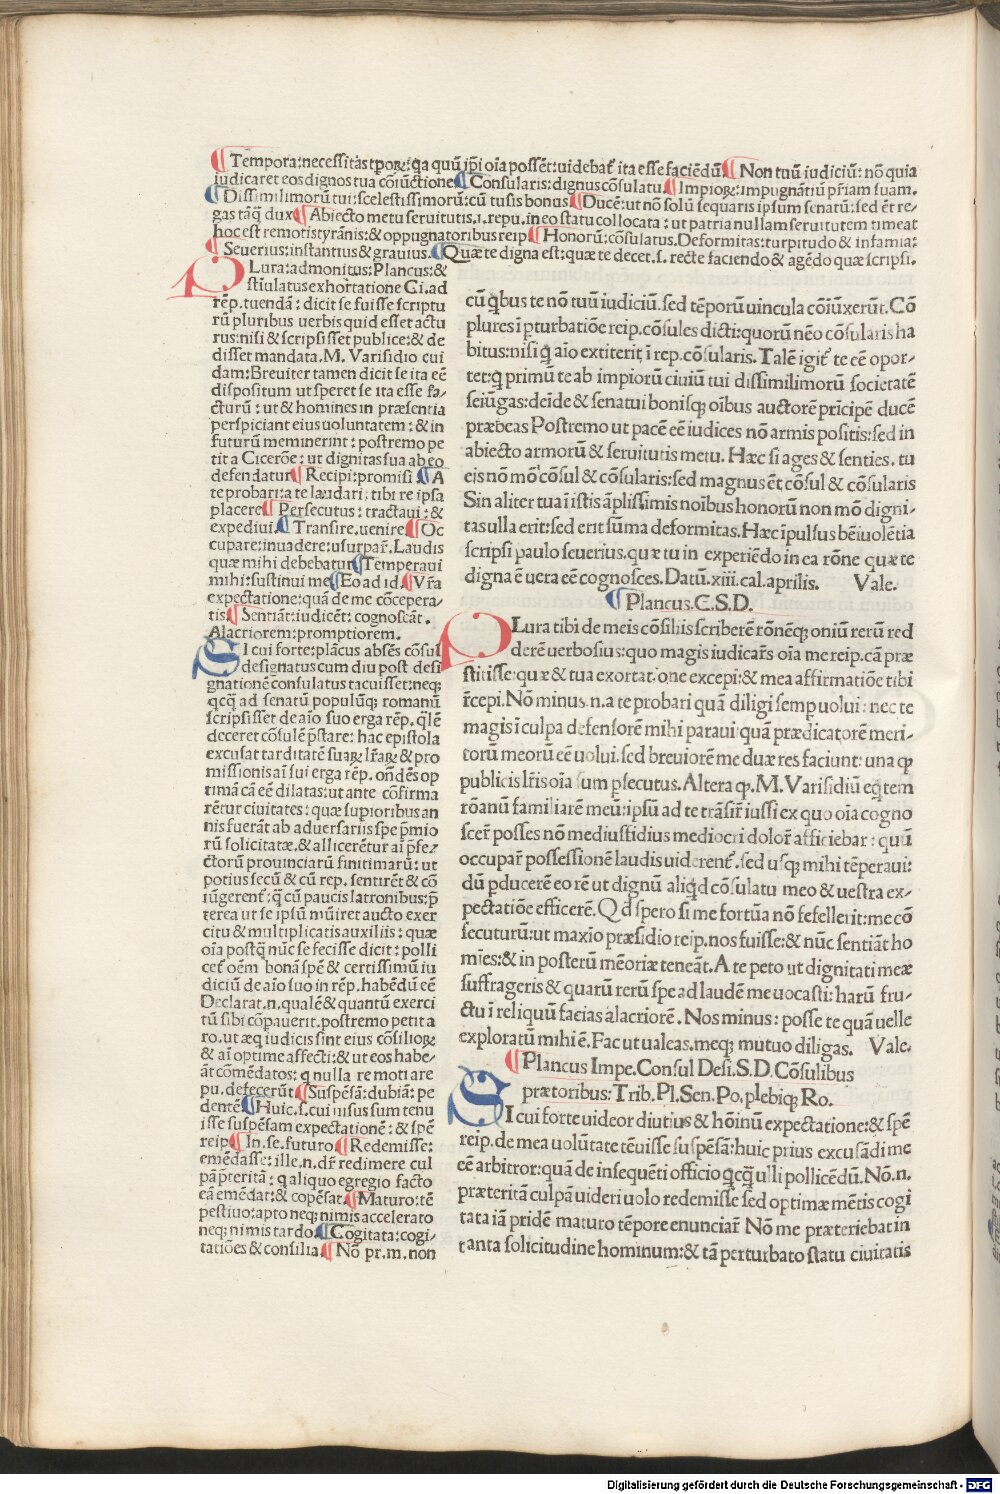 ¶ Tempora: necessitas tꝑoꝝ: ꝗa quū ip̄i oīa possēt: uidebať ita esse faciēdū ¶ Non tuū iudiciū: nō quia
iudicaret eos dignos tua cōiūctione ¶ Consularis: dignus cōsulatu ¶ Impioꝝ: impugnātiū pr̄iam suam.
¶ Dissimilimorū tui: scelestissimorū: cū tu sis bonus ¶ Ducē: ut nō solū sequaris ipsum senatū: sed ēt re/
gas tāꝗ̄ dux ¶ Abiecto metu seruitutis .i. repu. in eo statu collocata: ut patria nullam seruitutem timeat
hoc est remotis tyrānis: & oppugnatoribus reip ¶ Honorū: cōsulatus. Deformitas: turpitudo & infamia:
¶ Seuerius: instantius & grauius. ¶ Quæ te digna est: quæ te decet .s. recte faciendo & agēdo quæ scripsi.
PLura: admonitus: Plancus: &
stiulatus exhortatione Ci. ad
rēp. tuendā: dicit se fuisse scriptu
rū pluribus uerbis quid esset actu
rus: nisi & scripsisset publice: & de
disset mandata. M. Varisidio cui
dam: Breuiter tamen dicit se ita eē
dispositum ut speret se ita esse fa/
cturū: ut & homines in præsentia
perspiciant eius uoluntatem: & in
futurū meminerint: postremo pe
tit a Cicerōe: ut dignitas sua ab eo
defendatur ¶ Recipi: promisi ¶ A
te probari: a te laudari: tibi re ipsa
placere ¶ Persecutus: tractaui: &
expediui. ¶ Transire. uenire ¶ Oc
cupare: inuadere: usurpar̄. Laudis
quæ mihi debebatur ¶ Temperaui
mihi: sustinui me ¶ Eo ad id. ¶ Vr̄a
expectatione: quā de me cōcepera/
tis ¶ Sentiāt: iudicēt: cognoscāt.
Alacriorem: promptiorem.
SI cui forte: plācus absēs cōsul
designatus cum diu post desi
gnationē consulatus tacuisset: neq;
ꝗcꝗ̄ ad senatū populūq; romanū
scripsisset de aīo suo erga rēp. ꝗ̄lē
deceret cōsulē p̄stare: hac epistola
excusat tarditatē suaꝝ lr̄aꝝ & pro
missionis aī sui erga rēp. oñdēs op
timā cā eē dilatas: ut ante cōfirma
rētur ciuitates: quæ supioribus an
nis fuerāt ab aduersariis spe p̄mio
rū solicitatæ. & allicerētur aī p̄fe/
ctorū prouinciarū finitimarū: ut
potius secū & cū rep. sentirēt & cō
iūgerenť: ꝗ̄ cū paucis latronibus: p̄
terea ut se ipsū mūiret aucto exer
citu & multiplicatis auxiliis: quæ
oīa postꝗ̄ nūc se fecisse dicit: polli
ceť oēm bonā spē & certissimū iu
diciū de aīo suo in rēp. habēdū eē
Declarat .n. qualē & quantū exerci
tū sibi cōpauerit. postremo petit a
ro. ut æq iudicis sint eius cōsilioꝝ
& aī optime affecti: & ut eos habe/
āt cōmēdatos: ꝗ nulla remoti are
pu. defecerūt ¶ Suspēsā: dubiā: pe
dentē ¶ Huic .s. cui uisus sum tenu
isse suspēsam expectationē: & spē
reip ¶ In. se. futuro ¶ Redemisse:
emēdasse: ille .n. dr̄ redimere cul
pā p̄teritā: ꝗ aliquo egregio facto
eā emēdat: & copēsat ¶ Maturo: tē
pestiuo: apto neq; nimis accelerato
neq; nimis tardo. ¶ Cogitata: cogi/
tatiōes & consilia ¶ Nō pr. m. non
cū ꝗ̄bus te nō tuū iudiciū. sed tēporū uincula cōiūxerūt. Cō
plures ī pturbatiōe reip. cōsules dicti: quorū nēo cōsularis ha
bitus: nisi ꝗ̄ aīo extiterit ī rep. cōsularis. Talē igiť te eē opor/
tet: ꝗ̄ primū te ab impiorū ciuiū tui dissimilimorū societatē
seiūgas: deīde & senatui bonisq; oībus auctorē prīcipē ducē
præbeas Postremo ut pacē eē iudices nō armis positis: sed in
abiecto armorū & seruitutis metu. Hæc si ages & senties. tu
eis nō mō cōsul & cōsularis: sed magnus ēt cōsul & cōsularis
Sin aliter tua ī istis āplissimis noībus honorū non mō digni/
tas ulla erit: sed erit sūma deformitas. Hæc īpulsus bēiuolētia
scripsi paulo seuerius. quæ tu in experiēdo in ea rōne quæ te
digna ē uera eē cognosces. Datū. xiii. cal. aprilis. Vale.
¶ Plancus. C. S. D.
PLura tibi de meis cōsiliis scriberē rōnēq; oniū rerū red
derē uerbosius: quo magis iudicar̄s oīa me reip. cā præ
stitisse: quæ & tua exortatione excepi: & mea affirmatiōe tibi
r̄cepi. Nō minus .n. a te probari quā diligi semp uolui: nec te
magis ī culpa defensorē mihi paraui quā prædicatorē meri/
torū meorū eē uolui. sed breuiorē me duæ res faciunt: una ꝙ
publicis lr̄is oīa sum psecutus. Altera ꝙ. M. Varisidiū eq̄tem
rōanū familiarē meū: ipsū ad te trāsir̄ iussi ex quo oīa cogno
scer̄ posses nō mediusfidius mediocri dolor̄ afficiebar: quū
occupar̄ possessionē laudis uiderenť. sed usq; mihi tēperaui:
dū pducerē eo rē ut dignū aliꝗ̄d cōsulatu meo & uestra ex/
pectatiōe efficerē. Qd̄ spero si me fortūa nō fefellerit: me cō
secuturū: ut maxīo præsidio reip. nos fuisse: & nūc sentiāt ho
mīes: & in posterū mēoriæ teneāt. A te peto ut dignitati meæ
suffrageris & quarū rerū spe ad laudē me uocasti: harū fru/
ctu ī reliquū facias alacriorē. Nos minus: posse te quā uelle
exploratū mihi ē. Fac ut ualeas. meq; mutuo diligas. Vale.
¶ Plancus Impe. Consul Desi. S. D. Cōsulibus
prætoribus: Trib. Pl. Sen. Po. plebiq; Ro.
SI cui forte uideor diutius & hōinū expectatione: & spē
reip. de mea uolūtate tēuisse suspēsā: huic prius excusādi me
eē arbitror: quā de insequēti officio ꝗcꝗ̄ ulli pollicēdū. Nō .n.
præteritā culpā uideri uolo redemisse sed optimæ mētis cogi
tata iā pridē maturo tēpore enunciar̄ Nō me præteriebat in
tanta solicitudine hominum: & tā perturbato statu ciuitatis
Digitalisierung gefördert durch die Deutsche Forschungsgemeinschaft - DFG